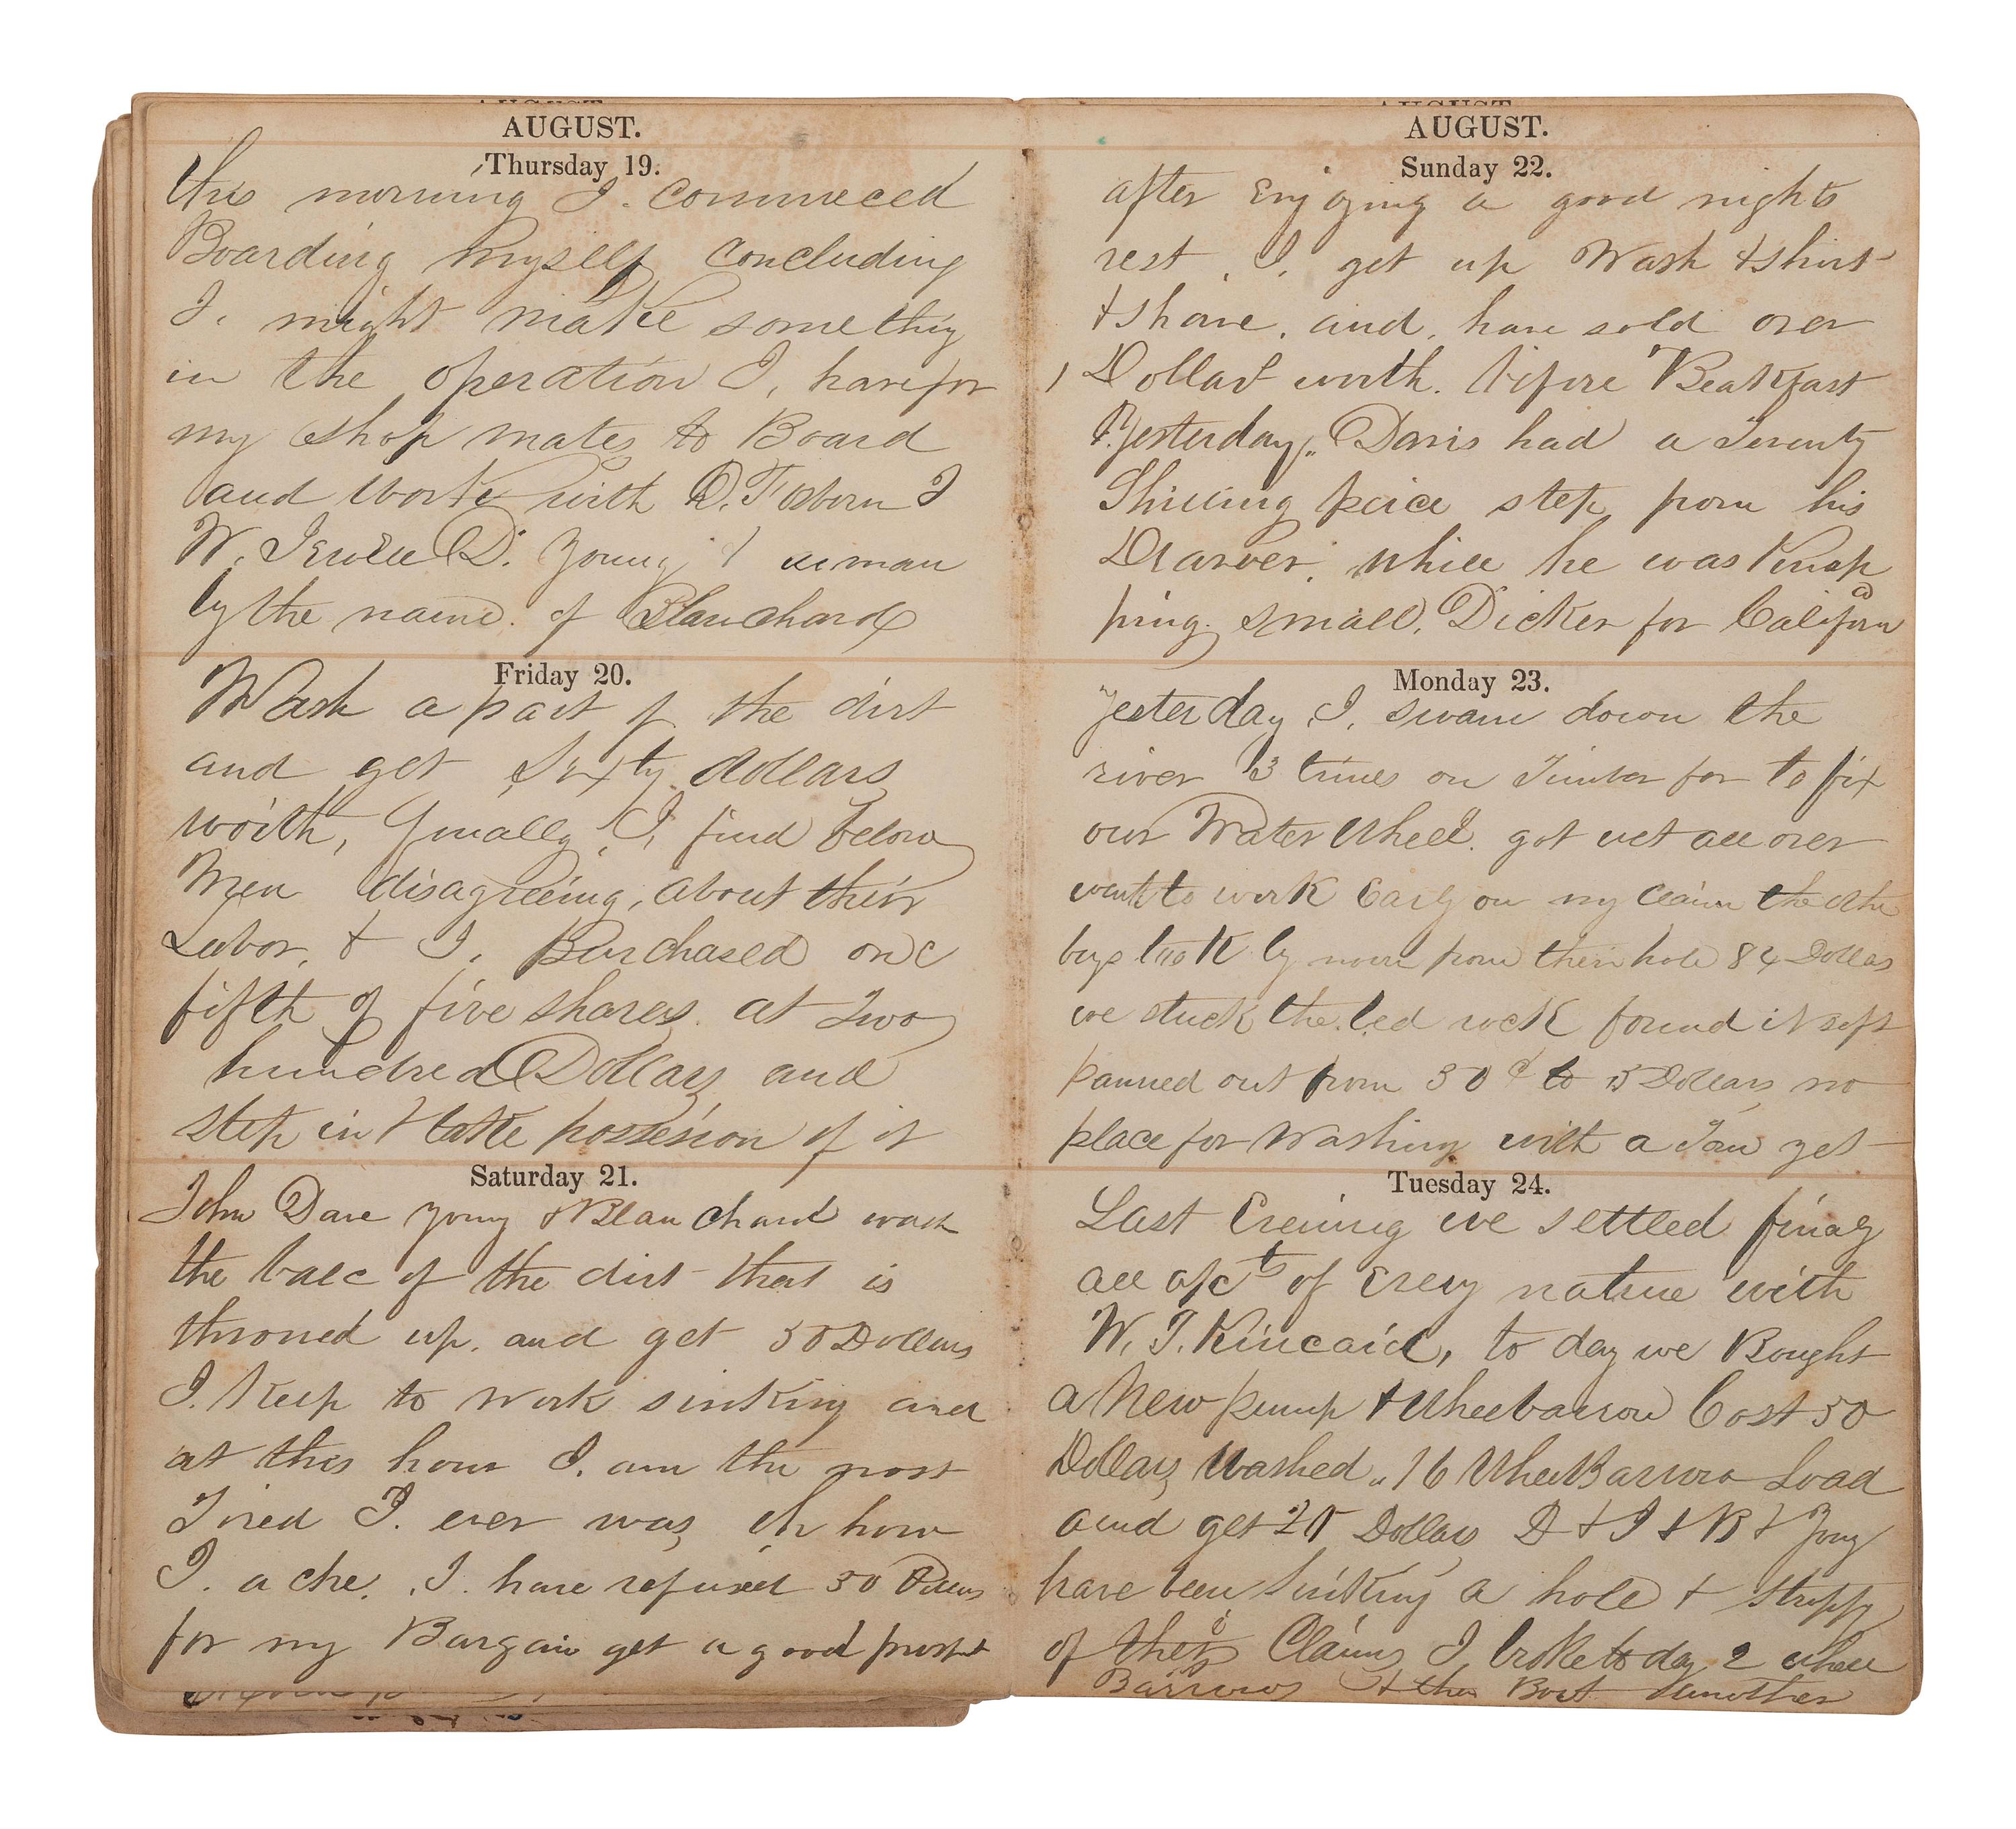 AUGUST.
Thursday 19.
this morning I. commneced
Boarding myself concluding
I. might make somethig
in the operation I, have for
my shop mates to Board
and work with D. T Osborn I
W. Jewell D. Young & a man
by the name. of Blanchard
Friday 20.
Wash a part of the dirt
and get Sixty dollars
worth, finally, I, find below
Men disagreeing, about their
Labor, & I, Purchased one
fifth of five shares. at Two
hundred Dollars and
step in & take possesion of it
Saturday 21.
John Dave Yong & Blanchard wash
the balc of the dirt that is
throned up. and get 50 Dollars
I. Keep to work sinking and
at this hour I. am the most
Tired I. ever was, oh how
I. ache. I. have refused 50 Dollars
for my Bargain get a good prospet
AUGUST.
Sunday 22.
after Enjoying a good nights
rest, I, get up Wash & shirt
& shave. and, have sold over
1 Dollar worth. before Beakfast
Yesterday,, Davis had a Twenty
Shilling peice step from his
Drawer. while he was Knap
ping. small. Dicker for Californ
Monday 23.
Yesterday I, swam down the
river 3 times on Timber for to fix
our Water Wheel. got wet all over
went to work Early on my Claim the
boys took by noon from their hole 84 Dollas
we stuck the bed rock found it soft
panned out from 50 ct to 5 Dollars no
place for Washing with a Tom yet
Tuesday 24.
Last Evening we settled finaly
all a/cts of Every nature with
W. T. Kincaid, to day we Bought
a New pump & Wheebarrow Cost 50
Dollars Washed ,, 16 WheelBarrow Load
aund get 20 Dollars D & I & B & Yong
have been Sinking a hole & Stripg
of their Claims I broke to day 2 wheel
Barrows & the Boat another